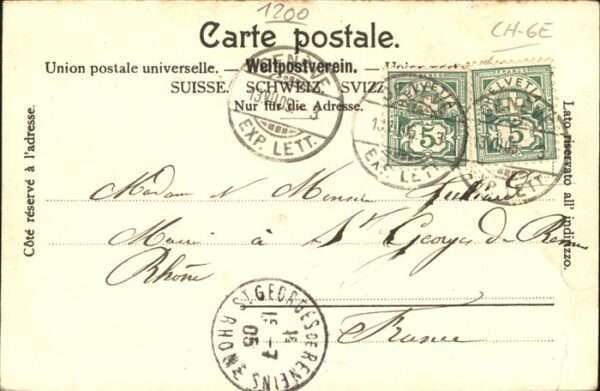 1200
CH-6E
Carte postale.
Union postale universelle. — Weltpostverein. — Unione postale
SUISSE. SCHWEIZ. SVIZZ
Nur für die Adresse.
Côté réservé à l'adresse.
Lato riservato all' indirizzo.
EXP. LETT.
3
HELVETIA
5
EXP. LETT.
HELVETIA
5
EXP. LETT.
3
Madame Monsieur
à St Georges de Reneins
Rhône
France
ST GEORGES DE RENEINS
15
-7
05
RHONE